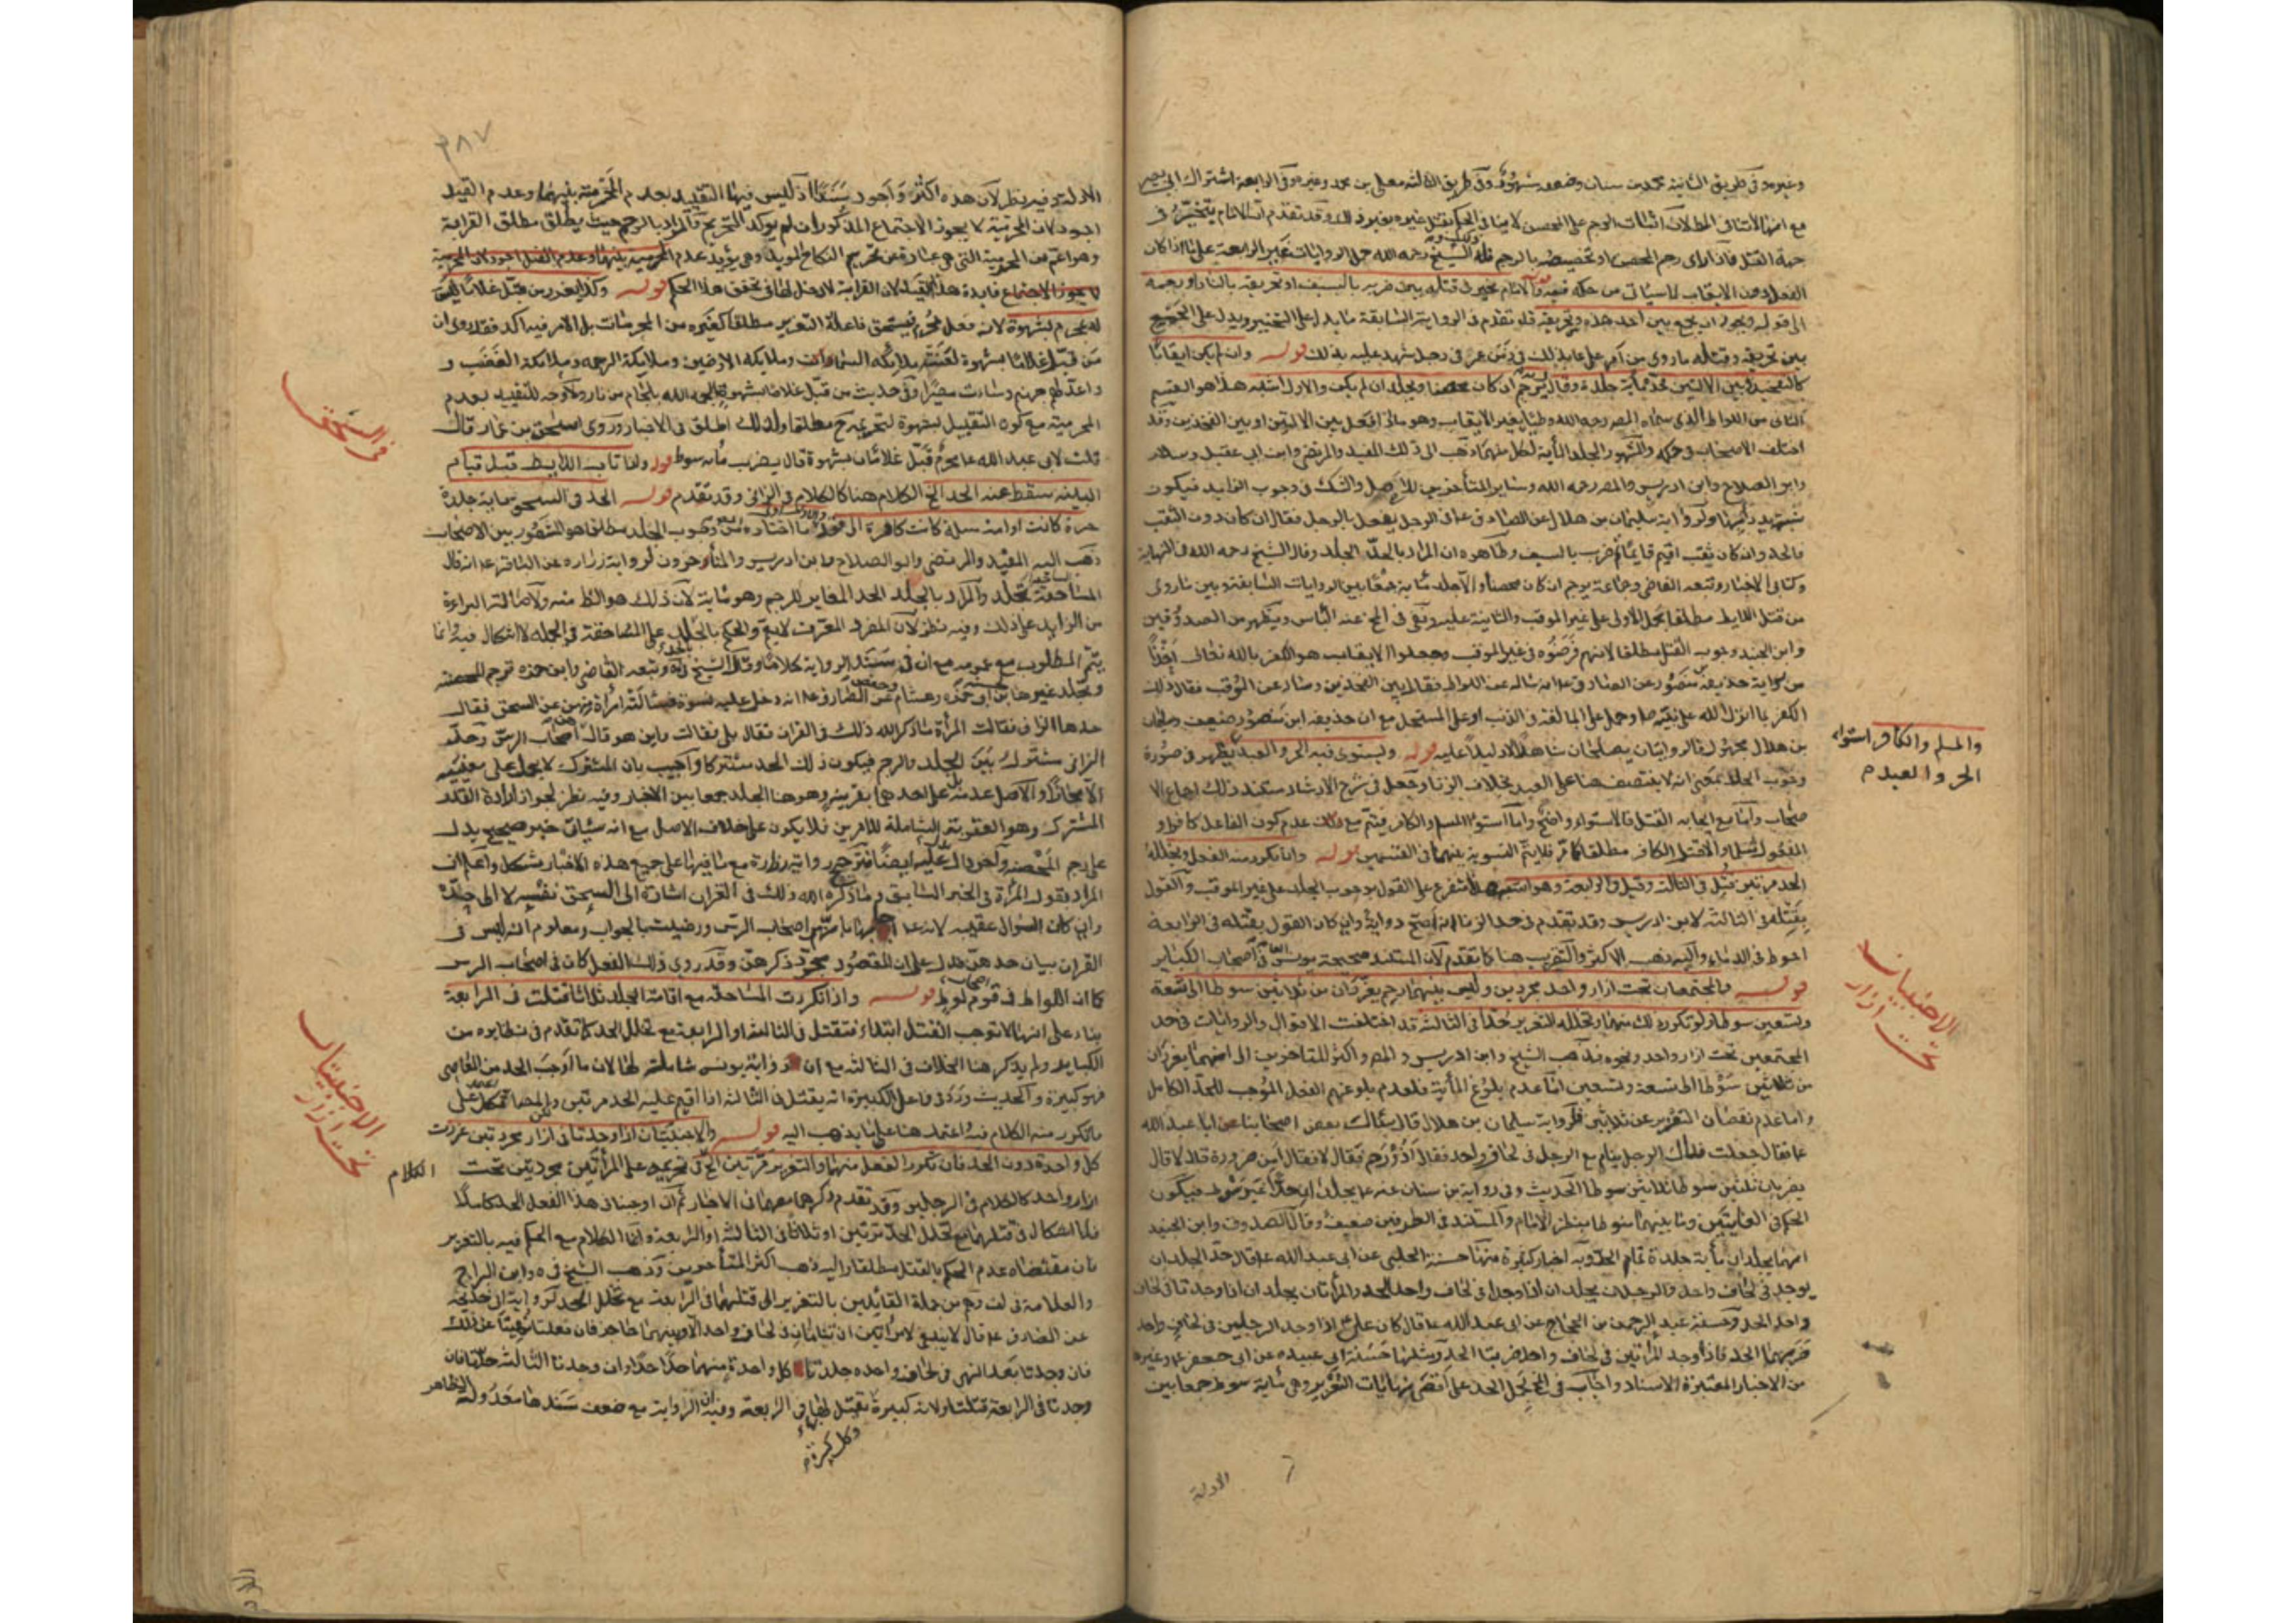 وغيره وفي طريق الثانية محمد بن سنان وضعفه مشهور وفي طريق الثالثة معلى بن محمد وغيره وفي الرابعة اشتراك أبي بصير
مع انها لا تنافي المطلوب لان اثبات الرجم على المحصن لا ينافي الحكم بقتل غيره بغير ذلك وقد تقدم ان الامام يتخير في
جهة القتل فان اراد رجم المحصن او تخصيصه بالرجم فله ذلك والشيخ رحمه الله حمل الروايات غير الرابعة على ما اذا كان
الفعل دون الايقاب لما سيأتي من حكمه قوله والامام مخير في قتله بين ضربه بالسيف او تحريقه بالنار او رجمه
الى قوله ويجوز ان يجمع بين احد هذه وتحريقه قد تقدم في الرواية السابقة ما يدل على التخيير ويدل على الجمع
بين تحريقه وقتله ما روي من امر علي ع بذلك في زمن عمر في رجل شهد عليه بذلك قوله وان لم يكن ايقابا
كالتفخيذ او بين الاليتين فحده مائة جلدة وقال يرجم ان كان محصنا ويجلد ان لم يكن والاول اشبه هذا هو القسم
الثاني من اللواط الذي سماه المص رحمه الله وطيا بغير الايقاب وهو ما اذا فعل بين الاليتين او بين الفخذين وقد
اختلف الاصحاب في حكمه والمشهور الجلد مائة لكل منهما ذهب الى ذلك المفيد والمرتضى وابن ابي عقيل وسلار
وابو الصلاح وابن ادريس والمص رحمه الله وسائر المتأخرين للاصل والشك في وجوب الزايد فيكون
شبهة يدرأ بها ولرواية سليمان بن هلال عن الصادق ع في الرجل يفعل بالرجل فقال ان كان دون الثقب
فالحد وان كان ثقب اقيم قايما ثم ضرب بالسيف وظاهره ان المراد بالحد الجلد وقال الشيخ رحمه الله في النهاية
وكتابي الاخبار وتبعه القاضي وجماعة يرجم ان كان محصنا والا جلد مائة جمعا بين الروايات السابقة وبين ما روي
من قتل اللايط مطلقا بحمل الاولى على غير الموقب والثانية عليه وبقي في المخ عنه الباس ويظهر من الصدوقين
وابن الجنيد وجوب القتل مطلقا لانهم فرضوه في غير الموقب وجعلوا الايقاب هو الكفر بالله تعالى اخذا
من رواية حذيفة بن منصور عن الصادق ع انه ساله عن اللواط فقال بين الفخذين وساله عن الموقب فقال ذلك
الكفر بما انزل الله على نبيه ص وحمل على المبالغة في الذنب او على المستحل مع ان حذيفة ابن منصور ضعيف وسليمان
بن هلال مجهول فالروايتان يصلحان شاهدا لا دليلا عليه قوله ويستوي فيه الحر والعبد يظهر في صورة
وجوب الجلد بمعنى انه لا ينتصف هنا على العبد بخلاف الزنا وجعل في شرح الارشاد مستند ذلك اجماع الا
صحاب واما مع ايجابه القتل فالاستواء واضح واما استواء المسلم والكافر فيتم مع ذلك عدم كون الفاعل كافرا و
المفعول مسلما والا قتل الكافر مطلقا كما مر فلا يتم التسوية بينهما في القسمين قوله واذا تكرر منه الفعل وتخلله
الحد مرتين قتل في الثالثة وقيل في الرابعة وهو اشبه هذا متفرع على القول بوجوب الجلد على غير الموقب والقول
بقتله في الثالثة لابن ادريس وقد تقدم في حد الزنا انه اصح رواية وان كان القول بقتله في الرابعة
احوط في الدماء واليه ذهب الاكثر والتقريب هنا كما تقدم لان المستند صحيحة يونس العامة في اصحاب الكباير
قوله والمجتمعان تحت ازار واحد مجردين وليس بينهما رحم يعزران من ثلاثين سوطا الى تسعة
وتسعين سوطا ولو تكرر ذلك منهما وتخلله التعزير حدا في الثالثة قد اختلفت الاقوال والروايات في حد
المجتمعين تحت ازار واحد ونحوه فذهب الشيخ وابن ادريس والمص واكثر المتأخرين الى انهما يعزران
من ثلاثين سوطا الى تسعة وتسعين اما عدم بلوغ المائة فلعدم بلوغهم الفعل الموجب للحد الكامل
واما عدم نقصان التعزير عن ثلاثين فلرواية سليمان بن هلال قال سال بعض اصحابنا ابا عبد الله
ع فقال جعلت فداك الرجل ينام مع الرجل في لحاف واحد فقال اذو رحم فقال لا فقال امن ضرورة قال لا قال
يضربان ثلثين سوطا ثلاثين سوطا الحديث وفي رواية بن سنان عنه ع يجلدان حدا غير سوط فيكون
الحكم في الغايتين وما بينهما منوطا بنظر الامام والمستند في الطرفين ضعيف وقال الصدوق وابن الجنيد
انهما يجلدان مائة جلدة تمام الحد وبه اخبار كثيرة منها حسنة الحلبي عن ابي عبد الله ع قال حد الجلد ان
يوجد في لحاف واحد والرجلان يجلدان اذا وجدا في لحاف واحد الحد والمرأتان يجلدان اذا وجدتا في لحاف
واحد الحد وحسنة عبد الرحمن بن الحجاج عن ابي عبد الله ع قال كان علي ع اذا وجد الرجلين في لحاف واحد
ضربهما الحد فاذا وجد المرأتين في لحاف واحد ضربهما الحد ومثلها حسنة ابي عبيدة عن ابي جعفر ع وغيرها
من الاخبار المعتبرة الاسناد واجاب في المخ بحمل الحد على اقصى نهايات التعزير وهي مائة سوط جمعا بين
الادلة
والمسلم والكافر استواء
الحر والعبد م
الاجنبيان
تحت ازار
٣٨٧
الادلة وفيه نظر لان هذه اكثر واجود سندا اذ ليس فيها التقييد بعدم المحرمية بينهما وعدم القيد
اجود لان المحرمية لا يجوز الاجتماع المذكور ان لم يؤكد التحريم والمراد بالرحم حيث يطلق مطلق القرابة
وهو اعم من المحرمية التي هي عبارة عن تحريم النكاح المؤبد وهي يؤيد عدم المحرمية بينهما وعدم القيد اجود لان المحرمية
لا يجوز الاجتماع فايدة هذا القيد لان القرابة لا دخل لها في تحقق هذا الحكم قوله وكذا يعزر من قبل غلاما ليس
له بمحرم بشهوة لانه فعل محرم فيستحق فاعله التعزير مطلقا كغيره من المحرمات بل الامر فيه اكد فقد روي ان
من قبل غلاما بشهوة لعنته ملائكة السماوات وملايكة الارضين وملايكة الرحمة وملائكة الغضب و
واعد لهم جهنم وساءت مصيرا وفي حديث من قبل غلاما بشهوة الجمه الله بلجام من نار ولا وجه للتقييد بعدم
المحرمية مع كون التقبيل بشهوة لتحريمه ح مطلقا ولذلك اطلق في الاخبار وروى اسحق بن عمار قال
قلت لابي عبد الله ع محرم قبل غلاما بشهوة قال يضرب مائة سوط قوله واذا تاب اللايط قبل قيام
البينة سقط عنه الحد الخ الكلام هنا كالكلام في الزاني وقد تقدم قوله الحد في السحق مائة جلدة
حرة كانت او امة مسلمة كانت كافرة الى قوله والاول اولى ما اختاره من وجوب الجلد مطلقا هو المشهور بين الاصحاب
ذهب اليه المفيد والمرتضى وابو الصلاح وابن ادريس والمتأخرون لرواية زرارة عن الباقر ع انه قال
المساحقة تجلد والمراد بالجلد الحد المغاير للرجم وهو مائة لان ذلك هو الظ منه ولاصالة البراءة
من الزايد على ذلك وفيه نظر لان المفرد المعرف لا يعم والحكم بالجلد على المساحقة في الجملة لا اشكال فيه وانما
يتم المطلوب مع عمومه مع ان في سند الرواية كلاما وقال الشيخ في يه وتبعه القاضي وابن حمزة ترجم المحصنة
وتجلد غيرها لحسنة ابن ابي حمزة وهشام وحفص عن الصادق ع انه دخل عليه نسوة فسالته امرأة منهن عن السحق فقال
حدها الزاني فقالت المرأة ما ذكر الله ذلك في القران فقال بلى فقالت واين هو قال هن اصحاب الرس وحد
الزاني مشترك بين الجلد والرجم فيكون ذلك الحد مشتركا واجيب بان المشترك لا يحمل على معنييه
الا مجازا والاصل عدمه بل على احدهما بقرينة وهو هنا الجلد جمعا بين الاخبار وفيه نظر لجواز ارادة القدر
المشترك وهو العقوبة الشاملة للامرين فلا يكون على خلاف الاصل مع انه سياتي خبر صحيح يدل
على رجم المحصنة واخر دال عليه ايضا فترجيح رواية زرارة مع ما فيها على جميع هذه الاخبار مشكل واعلم ان
المراد بقول المرأة في الخبر السابق وما ذكره الله ذلك في القران اشارة الى السحق نفسه لا الى حده
وان كان السؤال عقيبه لانه ع اجابها بانهم اصحاب الرس ورضيت بالجواب ومعلوم انه ليس في
القران بيان حدهن فدل على ان المقصود مجرد ذكرهن وقد روي ذلك الفعل كان في اصحاب الرس
كما ان اللواط في قوم لوط قوله واذا تكررت المساحقة مع اقامة الحد ثلاثا قتلت في الرابعة
بناء على انها لا توجب القتل ابتداء فتقتل في الثالثة او الرابعة مع تخلل الحد كما تقدم في نظايره من
الكباير ولم يذكر هنا الخلاف في الثالثة مع ان رواية يونس شاملة لها لان ما اوجب الحد من المعاصي
فهو كبيرة والحديث ورد في فاعل الكبيرة انه يقتل في الثالثة اذا اقيم عليه الحد مرتين والمص اعتمد على
ما تكرر منه الكلام فيه اعتمد هنا على ما يذهب اليه قوله والاجنبيتان اذا وجدتا في ازار مجردتين عزرت
كل واحدة دون الحد فان تكرر الفعل منهما والتعزير مرتين الخ في تحريم المرأتين مجردتين تحت
ازار واحد كالكلام في الرجلين وقد تقدم ذكرهما معهما في الاخبار ثم ان اوجبنا في هذا الفعل الحد كاملا
فلا اشكال في قتلهما مع تخلل الحد مرتين او ثلاثا في الثالثة او الرابعة وانما الكلام مع الحكم فيه بالتعزير
فان مقتضاه عدم الحكم بالقتل مطلقا واليه ذهب اكثر المتأخرين وذهب الشيخ في يه وابن البراج
والعلامة في لف وهو من جملة القائلين بالتعزير الى قتلهما في الرابعة مع تخلل الحد لرواية ابي خديجة
عن الصادق ع قال لا ينبغي لامرأتين ان تنامان في لحاف واحد الا وبينهما حاجز فان فعلتا نهيتا عن ذلك
فان وجدتا بعد النهي في لحاف واحد جلدتا كل واحدة منهما حدا حدا وان وجدتا الثالثة حدتا فان
وجدتا في الرابعة قتلتا ولانه كبيرة وكل كبيرة يقتل بها في الرابعة وفيه ان الرواية مع ضعف سندها معدولة الظاهر
في السحق
الاجنبيتان
تحت ازار
الكلام